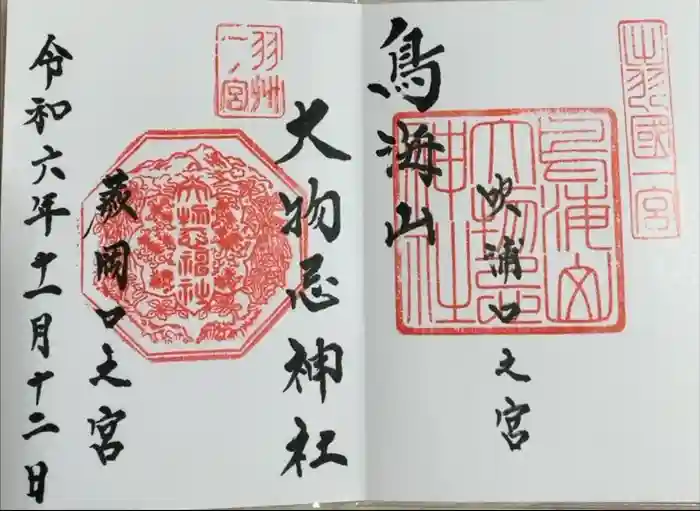 出羽國一宮
鳥海山
鳥海山
大物忌
神社
吹浦口之宮
大物忌神社
羽州
一ノ宮
蕨岡口之宮
令和六年十一月十二日